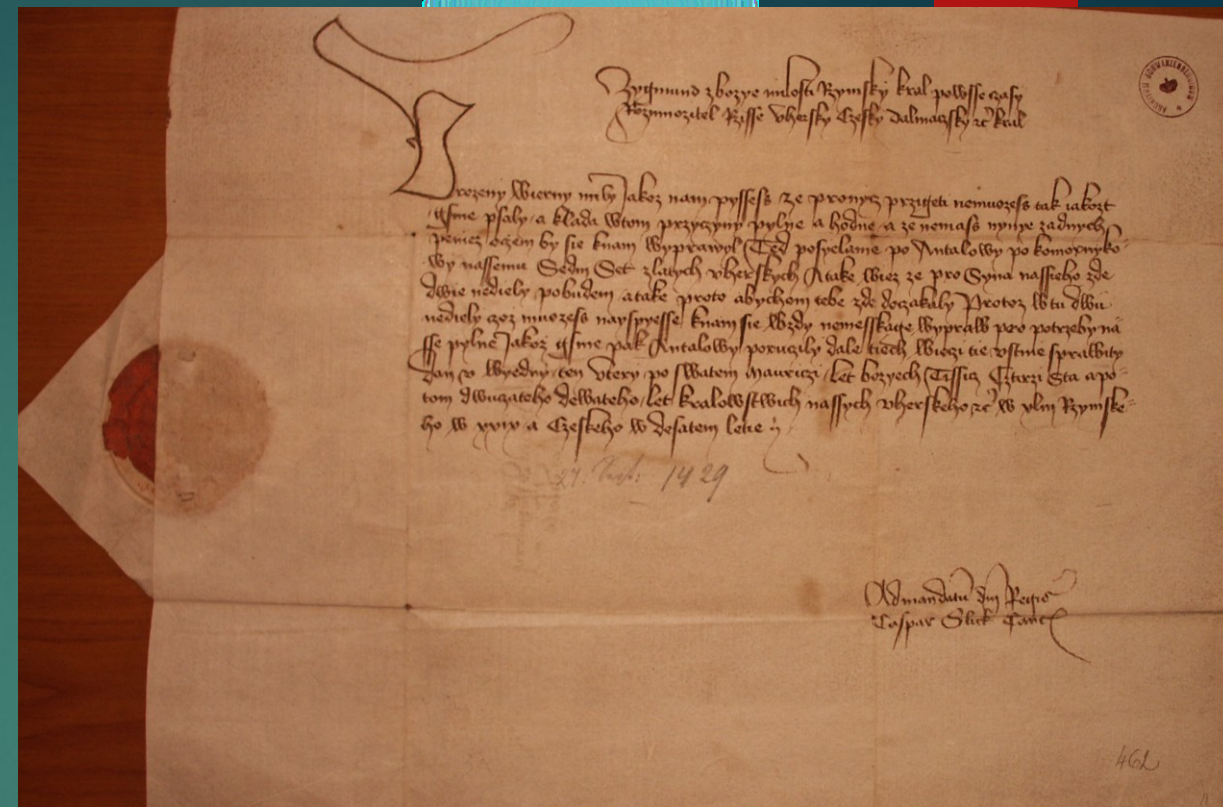 Zygmund zbozye milosti Rzymsky kral powsse czasy
Rozmnozitel Rzisse Vhersky Czesky Dalmaczsky etc kral
Vrozeny Wierny mily Jakoz nam pyssess ze pronycz przigeti nemuozess tak iakozt
gsme psaly a klada wtom przyczyny pylne a hodne a ze nemass nynye zadnych
peniez oczem by sie knam wyprawol Ted posyelame po Antalowy po komornyko-
wy nassemu Sedm Set zlatych vherskych A take wiez ze pro Syna nassieho zde
dwie nediely pobudem a take proto abychom tebe zde doczakaly Protoz w tu dwu
nediely czoz muozess nayspyesse knam sie wzdy nemesskage wypraw pro potrzeby na-
sse pylne Jakoz gsme pak Antalowy poruczily dale tiech wieczi tie vstnie sprawity
Dan v Wyedny ten vtery po swatem Mauriczi let bozyech Tissicz Cztirzi Sta a po-
tom dwuczateho dewateho let kralowstwich nassych vherskeho etc w xliii Rzymske-
ho w xxix a Czeskeho w desatem letie
27. Sept. 1429
Ad mandatum dni Regis
Caspar Slick Canc
462